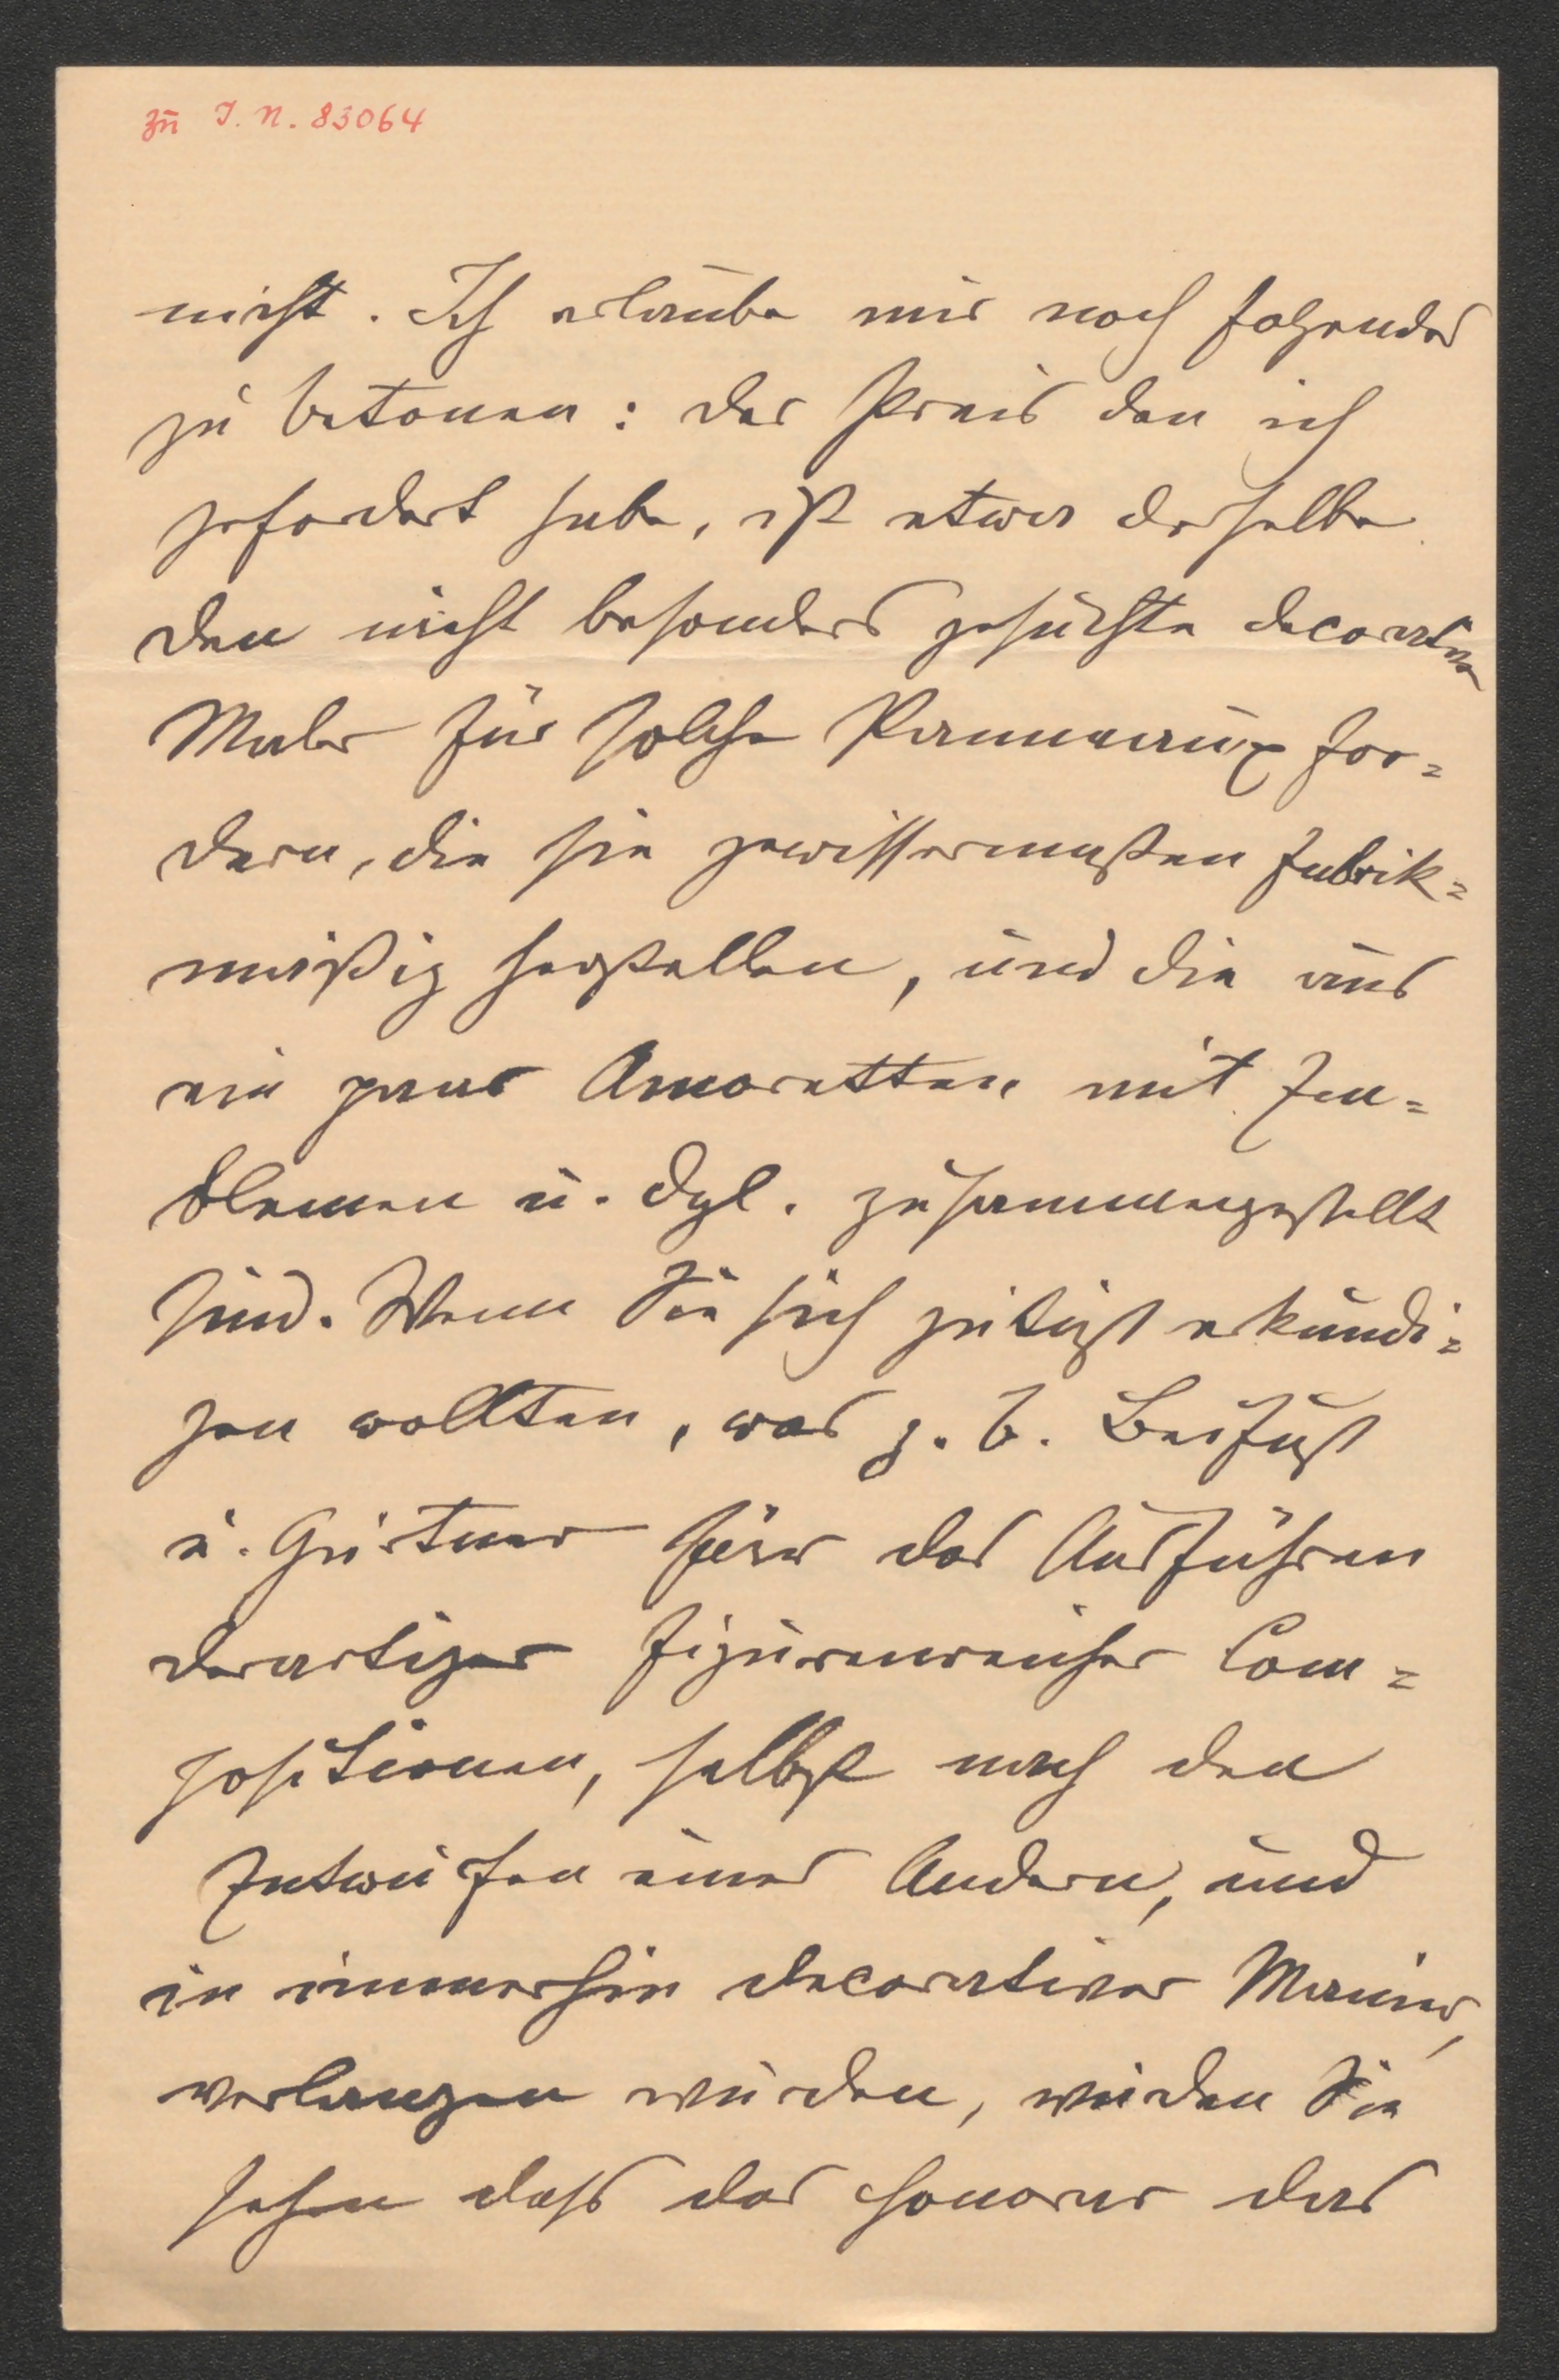 zu I. N. 83064
nicht. Ich erlaube mir noch folgendes
zu betonen: der Preis den ich
gefordert habe, ist etwa derselbe
den nicht besonders gesuchte decorative
Maler für solche Panneaux for=
dern, die sie gewissermaßen fabrik=
mäßig herstellen, und die aus
ein paar Amoretten mit Em=
blemen u. dgl. zusammengestellt
sind. Wenn Sie sich gütigst erkundi=
gen wollten, was z. B.
u. für das Ausführen
derartiger figurenreicher Com=
positionen, selbst nach den
Entwürfen eines Andern, und
in immerhin decorativer Manier,
verlangen würden, würden Sie
sehen daß das Honorar das